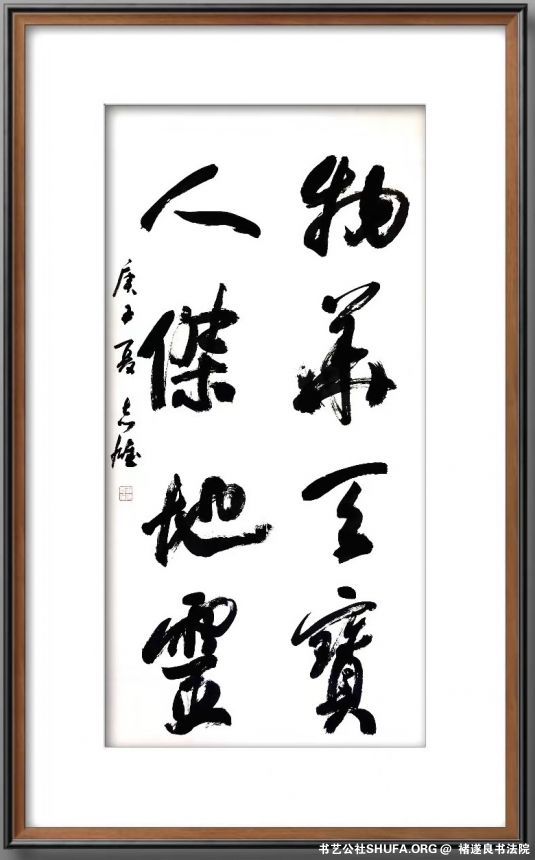 物華天寶
人傑地靈
庚子夏 志雄
书艺公社SHUFA.ORG @ 褚遂良书法院